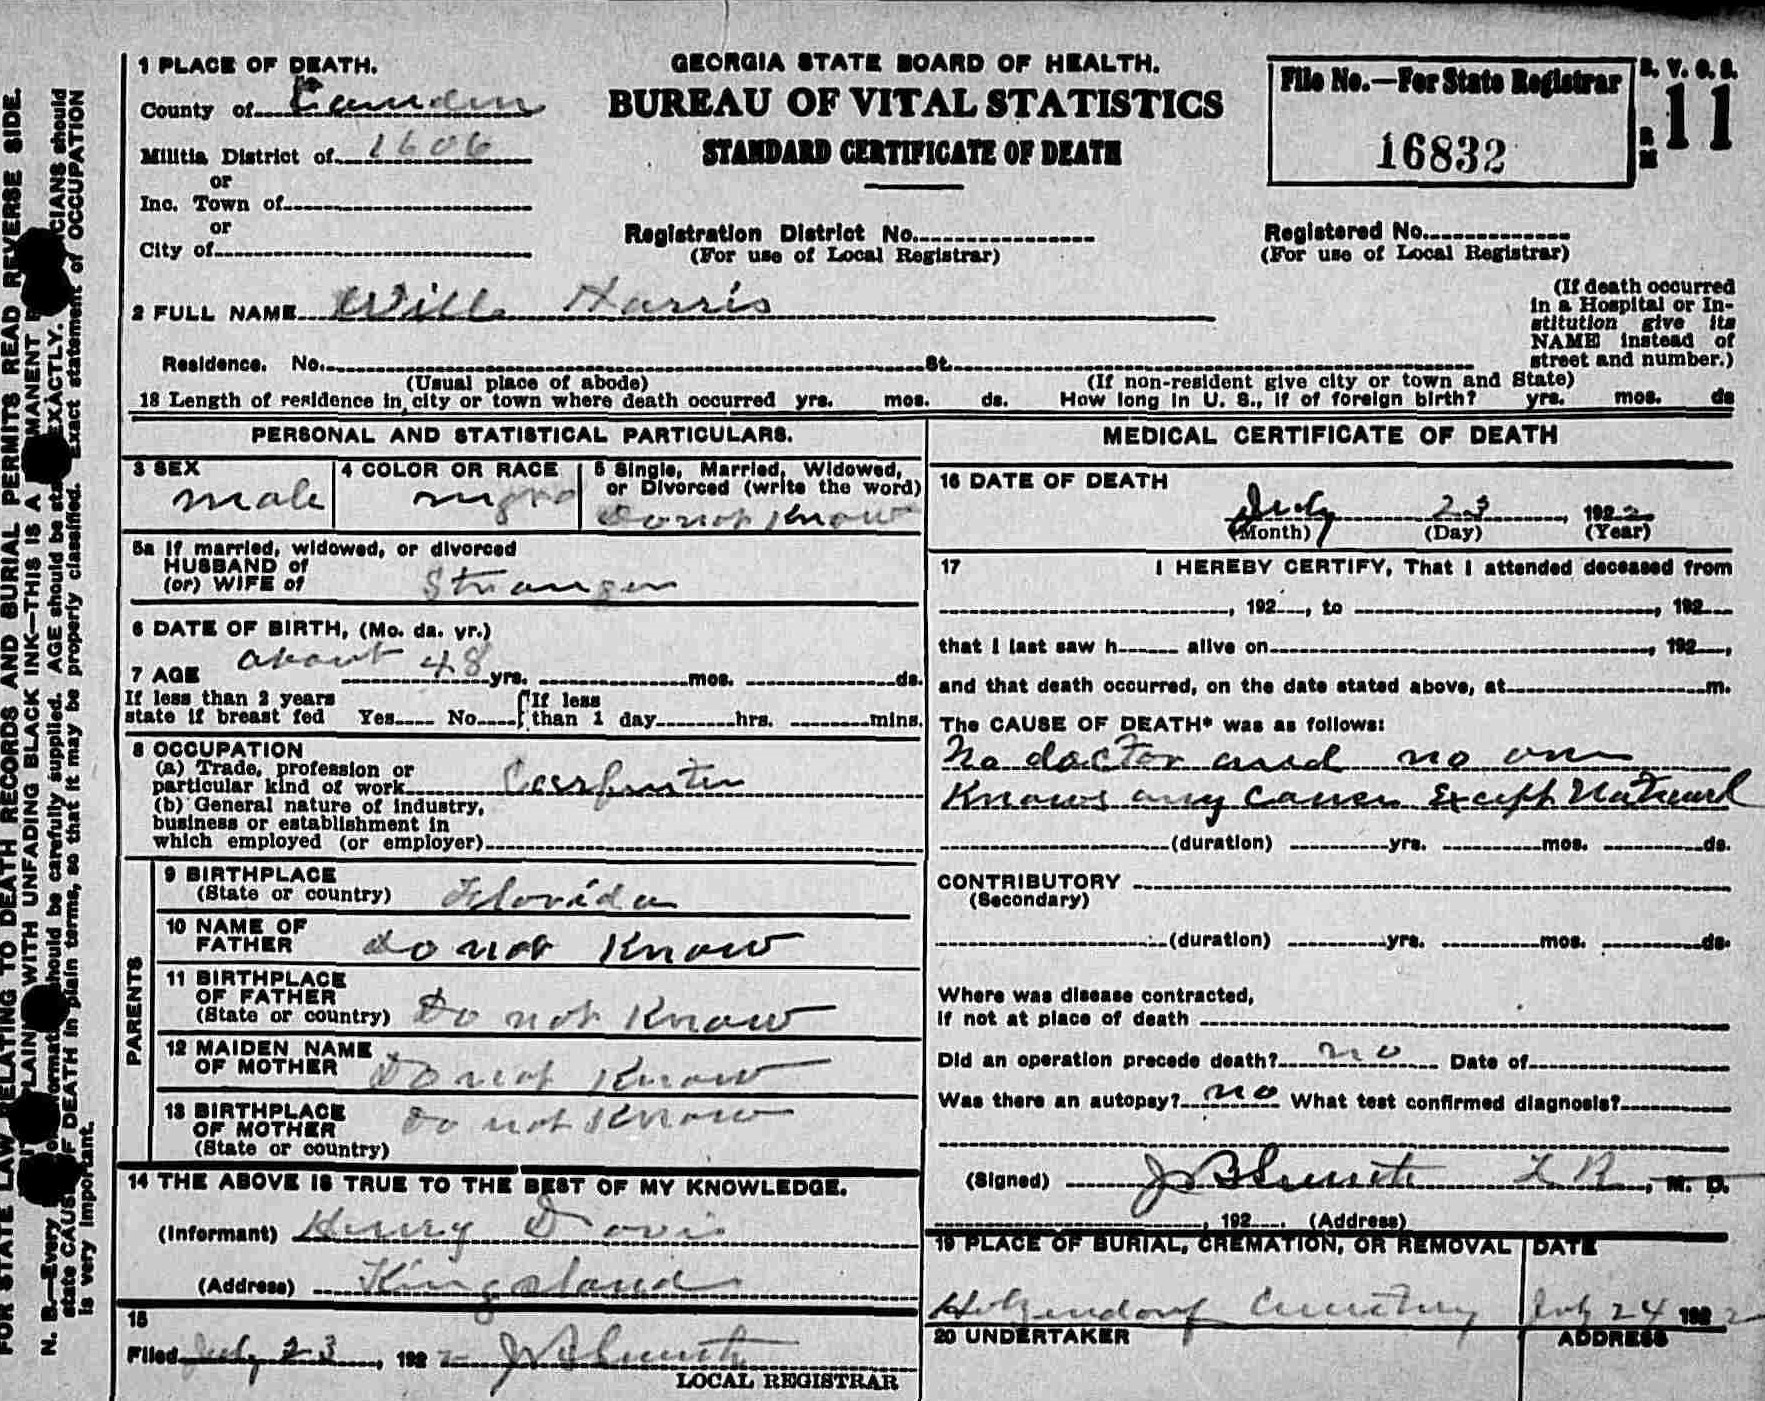 1 PLACE OF DEATH.
County of Camden
Militia District of 1606
or
Inc. Town of
or
City of
GEORGIA STATE BOARD OF HEALTH.
BUREAU OF VITAL STATISTICS
STANDARD CERTIFICATE OF DEATH
Registration District No.
(For use of Local Registrar)
File No.—For State Registrar
16832
11
Registered No.
(For use of Local Registrar)
2 FULL NAME Will Harris
(If death occurred
in a Hospital or In-
stitution give its
NAME instead of
street and number.)
Residence. No. St.
(Usual place of abode) (If non-resident give city or town and State)
18 Length of residence in city or town where death occurred yrs. mos. ds. How long in U. S., if of foreign birth? yrs. mos. ds
PERSONAL AND STATISTICAL PARTICULARS.
3 SEX
male
4 COLOR OR RACE
negro
5 Single, Married, Widowed,
or Divorced (write the word)
Do not Know
5a If married, widowed, or divorced
HUSBAND of
(or) WIFE of Stranger
6 DATE OF BIRTH, (Mo. da. yr.)
7 AGE about 48 yrs. mos. ds.
If less than 2 years
state if breast fed Yes No
If less
than 1 day hrs. mins.
8 OCCUPATION
(a) Trade, profession or
particular kind of work Carpenter
(b) General nature of industry,
business or establishment in
which employed (or employer)
PARENTS
9 BIRTHPLACE
(State or country) Florida
10 NAME OF
FATHER do not Know
11 BIRTHPLACE
OF FATHER
(State or country) Do not Know
12 MAIDEN NAME
OF MOTHER Do not Know
13 BIRTHPLACE
OF MOTHER
(State or country) Do not Know
14 THE ABOVE IS TRUE TO THE BEST OF MY KNOWLEDGE.
(Informant) Henry Davis
(Address) Kingsland
15
Filed July 23, 1922
LOCAL REGISTRAR
MEDICAL CERTIFICATE OF DEATH
16 DATE OF DEATH
July 23, 1922
(Month) (Day) (Year)
17 I HEREBY CERTIFY, That I attended deceased from
, 192 , to , 192
that I last saw h alive on , 192 ,
and that death occurred, on the date stated above, at m.
The CAUSE OF DEATH* was as follows:
No doctor and no one
Knows any cause Except Natural
(duration) yrs. mos. ds.
CONTRIBUTORY
(Secondary)
(duration) yrs. mos. ds.
Where was disease contracted,
if not at place of death
Did an operation precede death? no Date of
Was there an autopsy? no What test confirmed diagnosis?
(Signed) L R, M. D.
, 192 . (Address)
19 PLACE OF BURIAL, CREMATION, OR REMOVAL
Holzendorf Cemetery
DATE
July 24 1922
20 UNDERTAKER
ADDRESS
FOR STATE LAW RELATING TO DEATH RECORDS AND BURIAL PERMITS READ REVERSE SIDE.
N. B.—Every should be carefully supplied. AGE should be EXACTLY. should
state CAUSE OF DEATH in plain terms, so that it may be properly classified. Exact statement of OCCUPATION
is very important.
PLAINLY WITH UNFADING BLACK INK—THIS IS A